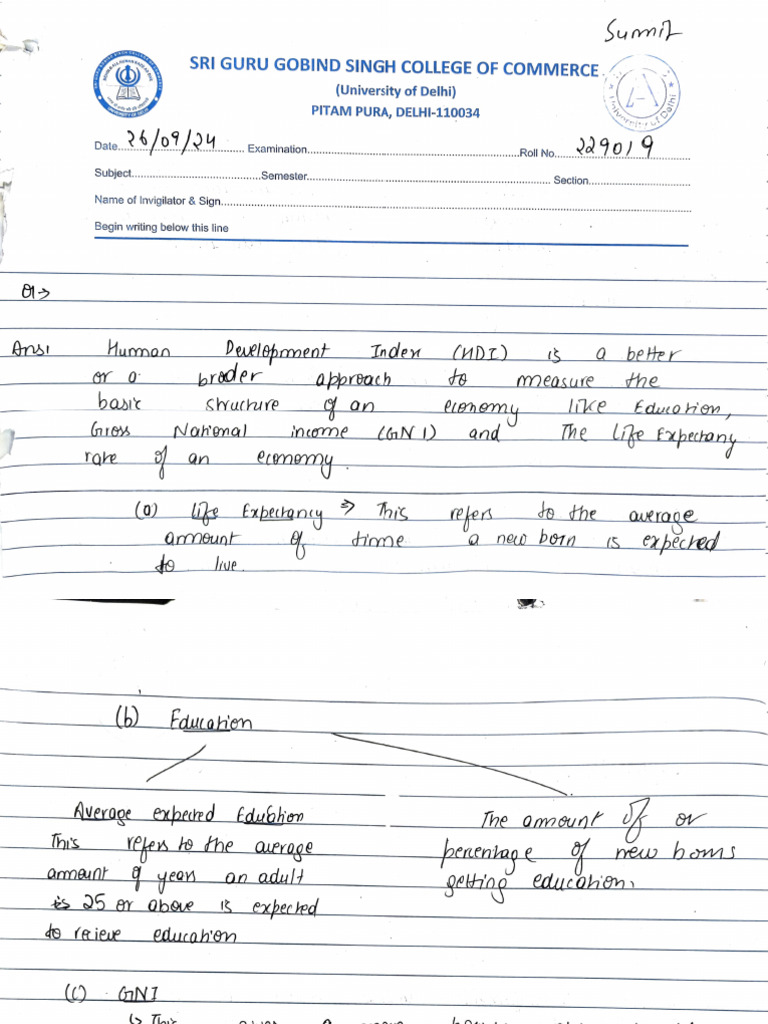 Sumit
SRI GURU GOBIND SINGH COLLEGE OF COMMERCE
(University of Delhi)
PITAM PURA, DELHI-110034
University of Delhi
Date 26/09/24 Examination Roll No. 229019
Subject Semester Section
Name of Invigilator & Sign
Begin writing below this line
Q1→
Ans1 Human Development Index (HDI) is a better
or a broder approach to measure the
basic structure of an economy like Education,
Gross National income (GNI) and The Life Expectany
rate of an economy.
(a) Life Expectancy ⇒ This refers to the average
amount of time a new born is expected
to live.
(b) Education
Average expected Education
This refers to the average
amount of years an adult
25 or above is expected
to recieve education
The amount of or
percentage of new borns
getting education.
(c) GNI
↳ This